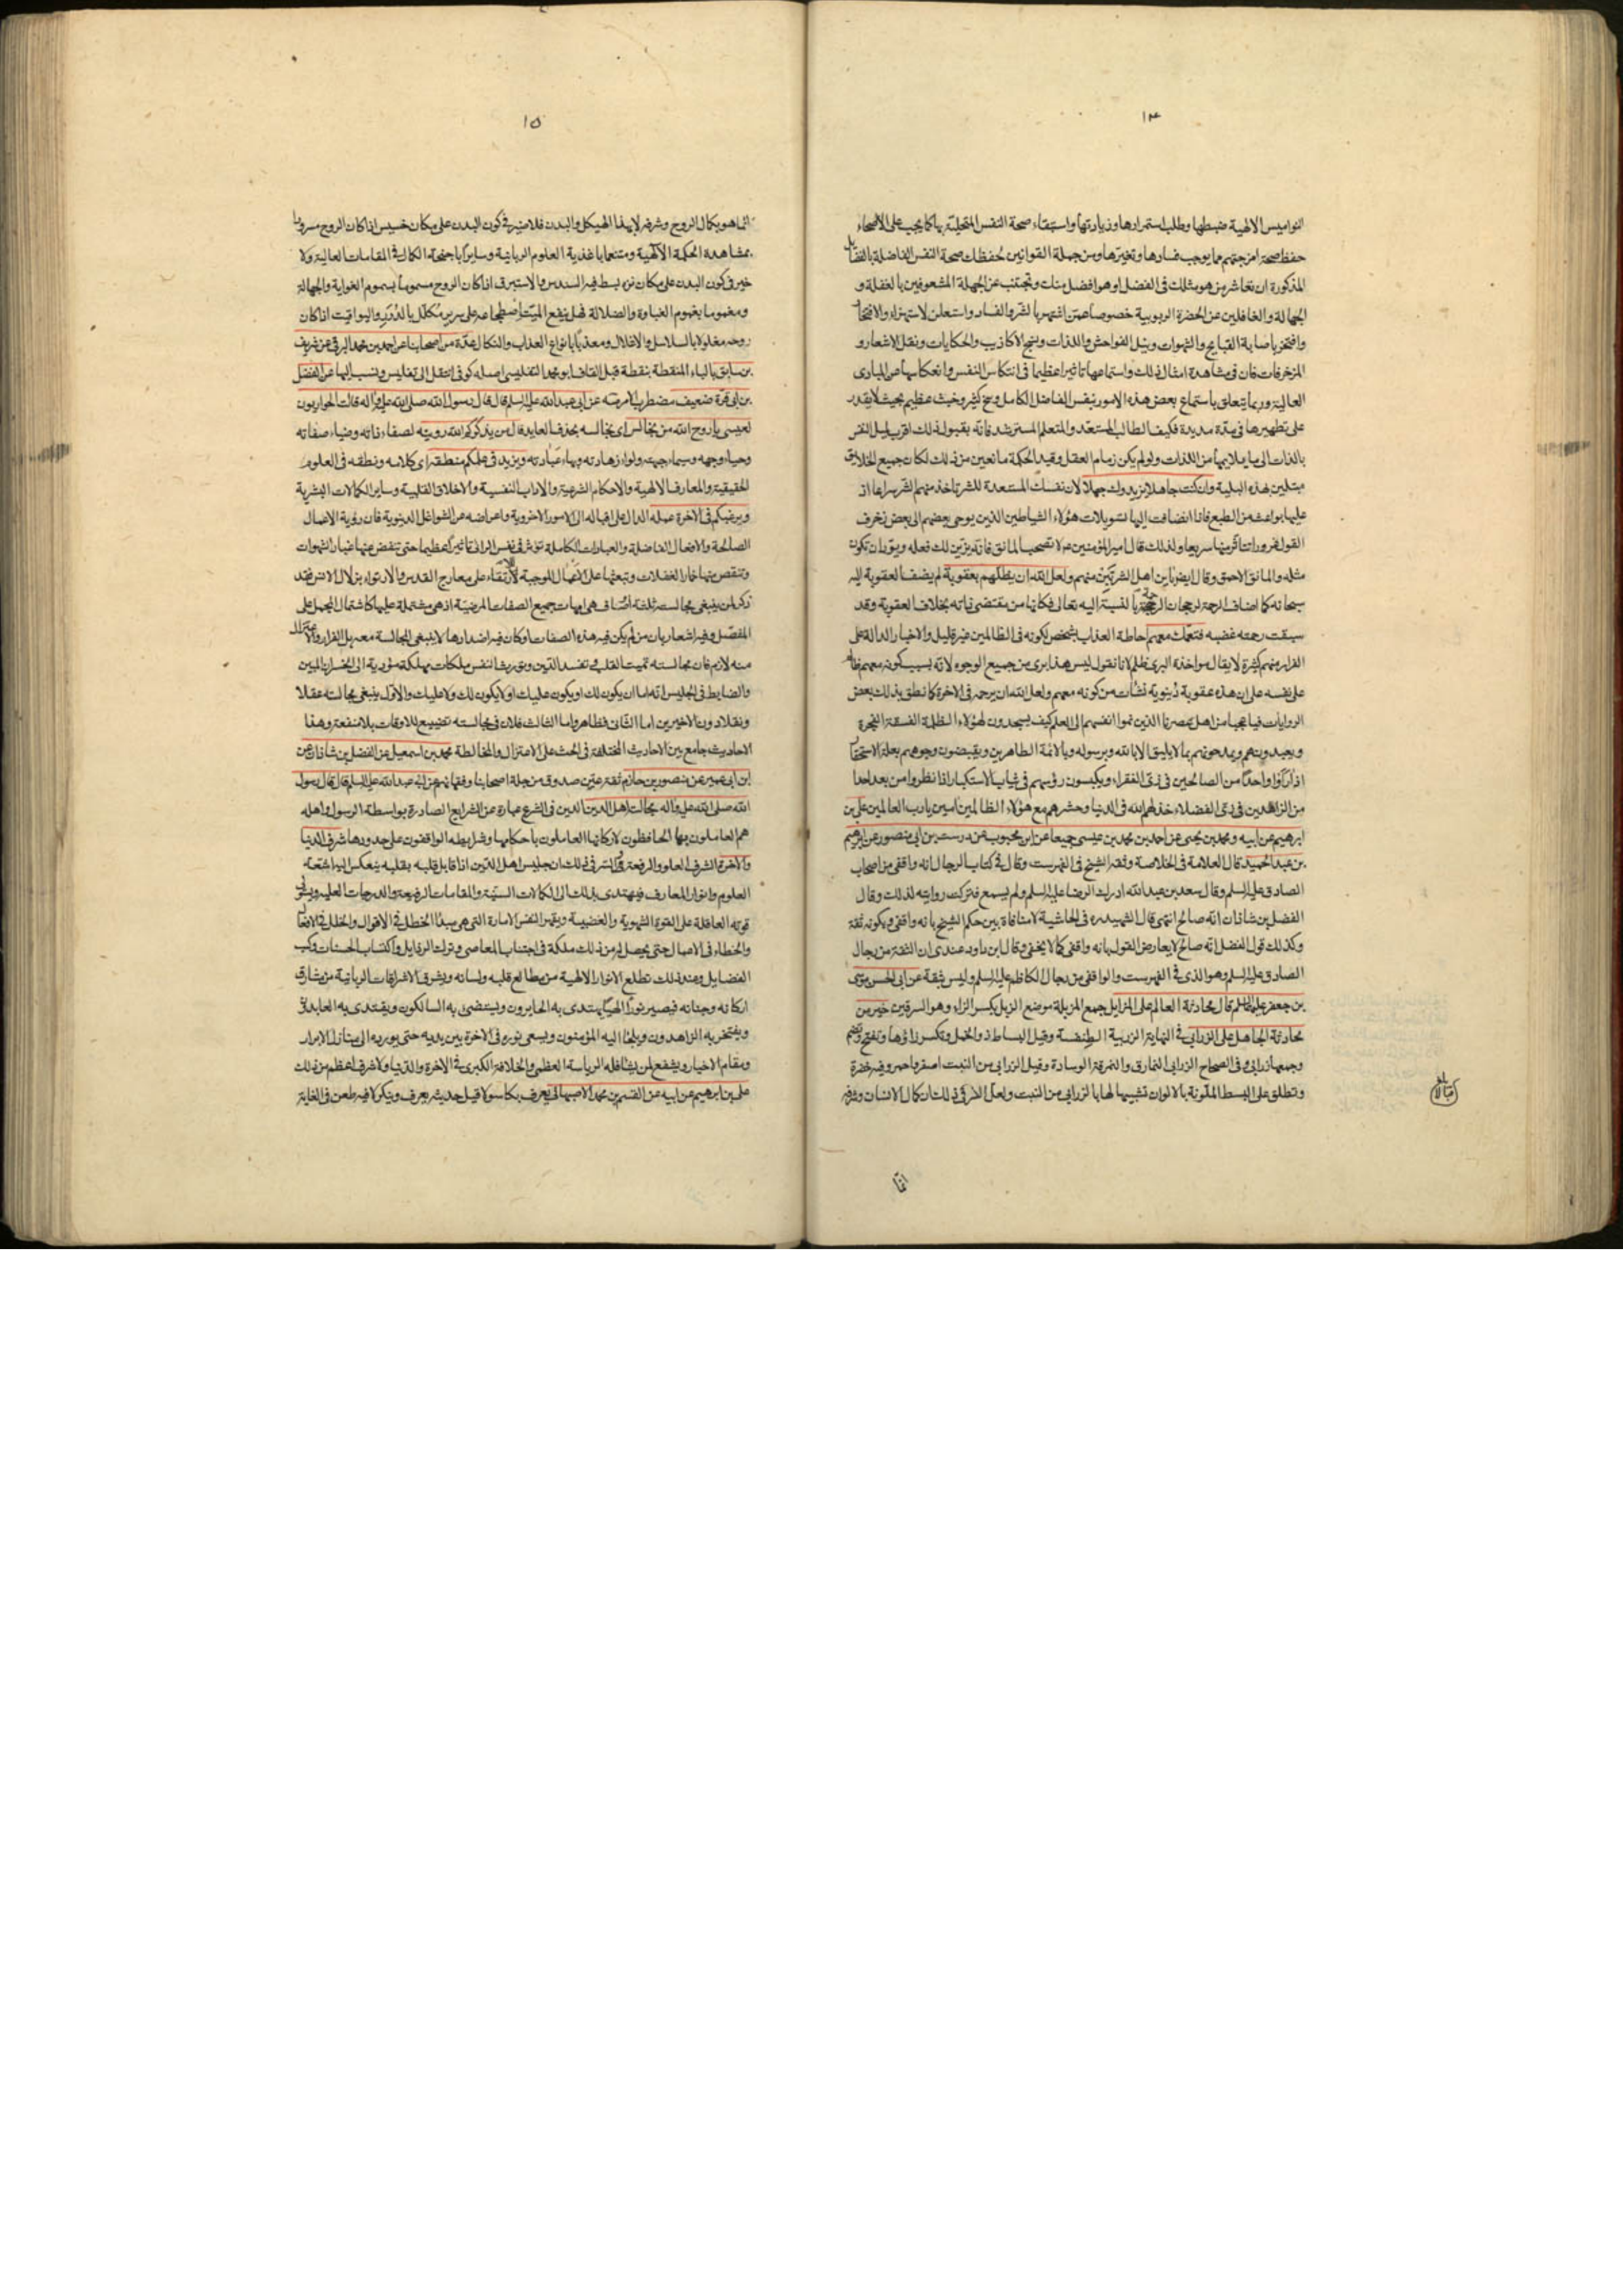 ١٤
النواميس الالهية ضبطها وطلب استمرارها وزيادتها واستبقاء صحة النفس المتحلية بها كما يجب على الاصحاء
حفظ صحة امزجتهم مما يوجب فسادها وتغيرها ومن جملة القوانين لحفظك صحة النفس الفاضلة بالفضايل
المذكورة ان تعاشر من هو مثلك فى الفضل او هو افضل منك وتجتنب عن الجهلة المشعوفين بالغفلة و
الجهالة والغافلين عن الحضرة الربوبية خصوصا عمن اشتهر بالشر والفساد واستعلن لاستهزاء والافتخار
وافتخر باصابة القبايح والشهوات ونيل الفواحش واللذات وينهج الاكاذيب والحكايات ونقل الاشعار و
المزخرفات فان فى مشاهدة امثال ذلك واستماعها تاثيرا عظيما فى انتكاس النفس وانعكاسها من المبادى
العالية وربما يتعلق باستماع بعض هذه الامور بنفس الفاضل الكامل وسخ كثير وخبث عظيم بحيث لا يقدر
على تطهيرها فى مدة مديدة فكيف الطالب المستعد والمتعلم المسترشد فانه بقبول ذلك اقرب لميل النفس
بالذات الى ما يلايمها من اللذات ولو لم يكن زمام العقل وقيد الحكمة مانعين من ذلك لكان جميع الخلايق
مبتلين بهذه البلية وان كنت جاهلا يزيدوك جهلا لان نفسك المستعدة للشر تاخذ منهم الشر سراعا اذ
عليها بواعث من الطبع فاذا انضافت اليها تسويلات هؤلاء الشياطين الذين يوحى بعضهم الى بعض زخرف
القول غرورا تتاثر منها سريعا ولذلك قال امير المؤمنين ع لا تصحب المائق فانه يزين لك فعله ويود ان تكون
مثله والمائق الاحمق وقال ايضا باين اهل الشر تبن منهم ولعل الله ان يظلهم بعقوبة لم يضف العقوبة اليه
سبحانه كما اضاف الرحمة لرجحان الرحمة بالنسبة اليه تعالى فكانها من مقتضى ذاته بخلاف العقوبة وقد
سبقت رحمته غضبه فتعمك معهم احاطة العذاب بشخص لكونه فى الظالمين غير قليل والاخبار الدالة على
الفرار منهم كثيرة لا يقال مواخذة البرى ظلم لانا نقول ليس هذا برى من جميع الوجوه لانه بسبب كونه معهم ظالم
على نفسه على ان هذه عقوبة دنيوية نشأت من كونه معهم ولعل الله ان يرحمه فى الاخرة كما نطق بذلك بعض
الروايات فيا عجبا من اهل عصرنا الذين نموا انفسهم الى العلم كيف يسجدون لهؤلاء الظلمة الفسقة الفجرة
ويعبدونهم ويمدحونهم بما لا يليق الا بالله وبرسوله وبالائمة الطاهرين ويقبضون وجوههم بعلة الاستحقار
اذا راوا واحدا من الصالحين فى زى الفقراء ويكبسون رؤسهم فى ثياب الاستكبار اذا نظروا من بعد احدا
من الزاهدين فى زى الفضلاء خذلهم الله فى الدنيا وحشرهم مع هؤلاء الظالمين امين يارب العالمين على بن
ابرهيم عن ابيه ومحمد بن يحيى عن احمد بن محمد بن عيسى جميعا عن ابن محبوب عن درست بن ابى منصور عن ابرهيم
بن عبد الحميد قال العلامة فى الخلاصة وثقه الشيخ فى الفهرست وقال فى كتاب الرجال انه واقفى من اصحاب
الصادق عليه السلم وقال سعد بن عبد الله ادرك الرضا عليه السلم ولم يسمع فتركت روايته لذلك وقال
الفضل بن شاذان انه صالح انتهى قال الشهيد ره فى الحاشية لا منافاة بين حكم الشيخ بانه واقفى وبكونه ثقة
وكذلك قول الفضل انه صالح لا يعارض القول بانه واقفى كما لا يخفى وقال ابن داود عندى ان الثقة من رجال
الصادق عليه السلم وهو الذى فى الفهرست والواقفى من رجال الكاظم عليه السلم وليس بثقة عن ابى الحسن موسى
بن جعفر عليهما السلم قال محادثة العالم على المزابل جمع المزبلة موضع الزبل بكسر الزاء وهو السرقين خير من
محادثة الجاهل على الزرابى فى النهاية الزربية الطنفسة وقيل البساط ذو الخمل وتكسر زاؤها وتفتح وتضم
وجمعها زرابى وفى الصحاح الزرابى النمارق والنمرقة الوسادة وقيل الزرابى من النبت اصفر واحمر وفيه خضرة
وتطلق على البسط الملونة بالالوان تشبيها لها بالزرابى من النبت ولعل السر فى ذلك ان كمال الانسان وشرفه
انما
١٥
انما هو بكمال الروح وشرفه لا بهذا الهيكل والبدن فلا ضير فى كون البدن على مكان خسيس اذا كان الروح مسرورا
بمشاهدة الحكمة الالهية ومتنعما باغذية العلوم الربانية وسايرا باجنحة الكمال فى المقامات العالية ولا
خير فى كون البدن على مكان نزه بسط فيه السندس والاستبرق اذا كان الروح مسموما بسموم الغواية والجهالة
ومغموما بغموم الغباوة والضلالة فهل ينفع الميت اضطجاعه على سرير مكلل بالدرر واليواقيت اذا كان
روحه مغلولا بالسلاسل والاغلال ومعذبا بانواع العذاب والنكال عدة من اصحابنا عن احمد بن محمد البرقى عن شريف
بن سابق بالباء المنقطة بنقطة قبل القاف ابو محمد التفليسى اصله كوفى انتقل الى تفليس ونسب اليها عن الفضل
بن ابى قرة ضعيف مضطرب الامر ثقة عن ابى عبد الله عليه السلم قال قال رسول الله صلى الله عليه واله قالت الحواريون
لعيسى ياروح الله من نجالس اى نجالسه بحذف العايد قال من يذكركم الله رويته لصفاء ذاته وضياء صفاته
وحياء وجهه وسيماء جبهته ولواء زهادته وبهاء عبادته ويزيد فى علمكم منطقه اى كلامه ونطقه فى العلوم
الحقيقية والمعارف الالهية والاحكام الشرعية والاداب النفسية والاخلاق القلبية وساير الكمالات البشرية
ويرغبكم فى الاخرة عمله الدال على اقباله الى الامور الاخروية واعراضه عن الشواغل الدنيوية فان روية الاعمال
الصالحة والافعال الفاضلة والعبادات الكاملة تؤثر فى نفس الرائى تاثيرا عظيما حتى تنفض عنها غبار الشهوات
وتنقص منها خمار الغفلات وتبعثها على الاعمال الموجبة للارتقاء على معارج القدس والارتواء بزلال الانس فقد
ذكر لمن ينبغى مجالسته ثلثة اصناف هى امهات جميع الصفات المرضية اذ هى مشتملة عليها كاشتمال المجمل على
المفصل وفيه اشعار بان من لم يكن فيه هذه الصفات او كان فيه اضدادها لا ينبغى المجالسة معه بل الفرار والاعتزال
منه لازم فان مجالسته تميت القلب وتفسد الدين ويورث النفس ملكات مهلكة مؤدية الى الخسران المبين
والضابط فى الجليس انه اما ان يكون لك او يكون عليك او لا يكون لك ولا عليك والاول ينبغى مجالسته عقلا
ونقلا دون الاخيرين اما الثانى فظاهر واما الثالث فلان فى مجالسته تضييع للاوقات بلا منفعة وهذا
الاحاديث جامع بين الاحاديث المختلفة فى الحث على الاعتزال والمخالطة محمد بن اسمعيل عن الفضل بن شاذان عن
ابن ابى عمير عن منصور بن حازم ثقة عين صدوق من جملة اصحابنا وفقهائهم عن ابى عبد الله عليه السلم قال قال رسول
الله صلى الله عليه واله مجالسة اهل الدين الدين فى الشرع عبارة عن الشرايع الصادرة بواسطة الرسول واهله
هم العاملون بها الحافظون لاركانها العاملون باحكامها وشرايطه الواقفون على حدودها شرف الدنيا
والاخرة الشرف العلو والرفعة والسر فى ذلك ان جليس اهل الدين اذا قابل قلبه بقلبه ينعكس اليه اشعة
العلوم وانوار المعارف فيهتدى بذلك الى الكمالات السنية والمقامات الرفيعة والدرجات العلية ويستولى
قوته العاقلة على القوة الشهوية والغضبية ويقهر النفس الامارة التى هى مبدأ الخطل فى الاقوال والخلل فى الافعال
والخطاء فى الاعمال حتى يحصل له من ذلك ملكة فى اجتناب المعاصى وترك الرذايل واكتساب الحسنات وكسب
الفضايل وعند ذلك تطلع الانوار الالهية من مطالع قلبه ولسانه ويشرق الاشراقات الربانية من مشارق
اركانه وجنانه فيصير نورا الهيا يهتدى به الحايرون ويستضئ به السالكون ويقتدى به العابدون
ويفتخر به الزاهدون ويلجأ اليه المؤمنون ويسعى نوره فى الاخرة بين يديه حتى يورده الى منازل الابرار
ومقام الاخيار ويشفع لمن يشاء فله الرياسة العظمى والخلافة الكبرى فى الاخرة والدنيا ولا شرف اعظم من ذلك
على بن ابرهيم عن ابيه عن القسم بن محمد الاصبهانى يعرف بكاسولا قيل حديثه يعرف وينكر لا فيه طعن فى الغاية